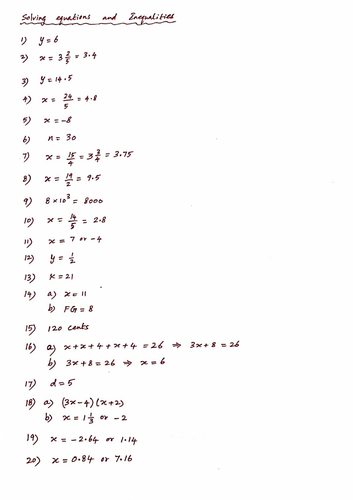 Solving equations and Inequalities
1) y = 6
2) x = 3 2/5 = 3.4
3) y = 14.5
4) x = 24/5 = 4.8
5) x = -8
6) n = 30
7) x = 15/4 = 3 3/4 = 3.75
8) x = 19/2 = 9.5
9) 8 × 10³ = 8000
10) x = 14/5 = 2.8
11) x = 7 or -4
12) y = 1/2
13) k = 21
14) a) x = 11
b) FG = 8
15) 120 cents
16) a) x + x + 4 + x + 4 = 26 ⇒ 3x + 8 = 26
b) 3x + 8 = 26 ⇒ x = 6
17) d = 5
18) a) (3x - 4)(x + 2)
b) x = 1 1/3 or -2
19) x = -2.64 or 1.14
20) x = 0.84 or 7.16